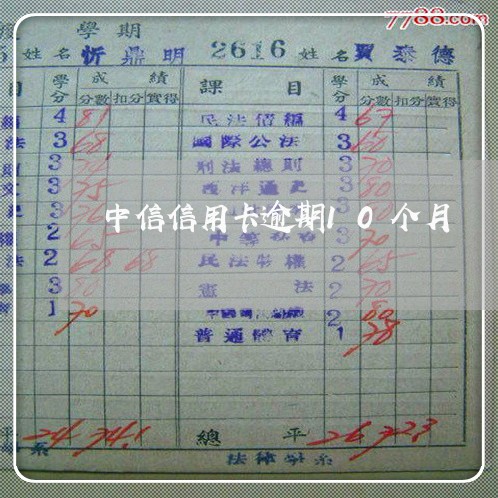 7788.com
學期
姓名 忻鼎明 2616 姓名 賈泰德
目 學分 成績 課目 學分 成績
分數 扣分 實得 分數 扣分 實得
4 81 民法債編 4 67
法 3 68 國際公法 3 60
3 刑法總則 3 70
3 75 西洋通史 3 80
3
中信信用卡逾期10个月
2 65 3 70
法 2 68 68 民法物權 2 65
3 80 憲法 2 70
1 70 2 80
普通體育 1 78
平 24 74.1 總平 26 72.3
系 法律學系